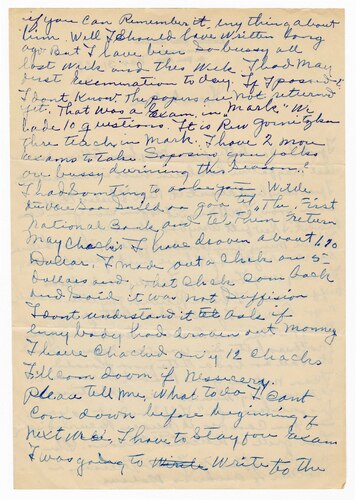 if you can Remember it, any thing about
him. Well I should have written long
ago But I have bien so bussy all
last Week and this Week. I had May
first Examenation to day. If I passed
I dont Know. The papers are not returned
yet. That was a Exam, in "Mark" We
had 10 questions. It is Rew
three teach in Mark. I have 2 more
exams to take. Soposing you folks
are bussy durining this season?
I had somting to aske you. Wilde
go to "The First
National Bank and tel them return
May Chacks. I have drawn about 1.90
Dollar. I made out a Chek on 5-
Dollars and that Chek Com back
and said it was not suffision
I dont understand it Ask if
eany body had drawn out Monney
I have Chached only 12 Chacks
I'll com down if Nessicery.
Please tell me, What to do I Cant
Com down before beginning of
next We I have to stay for exam
I was going to Write to the